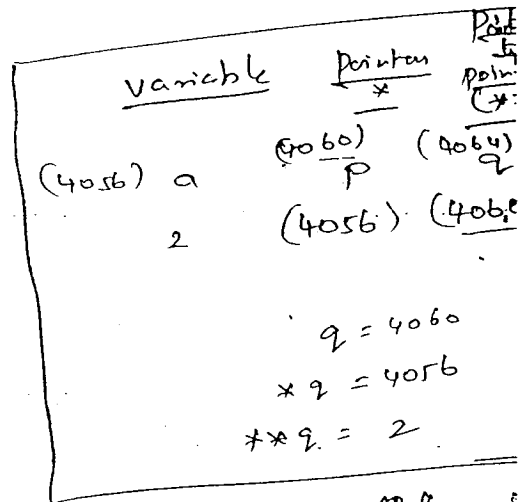 variable pointer
*
(4060) (4064)
(4056) a p q
2 (4056)
q = 4060
*q = 4056
**q = 2